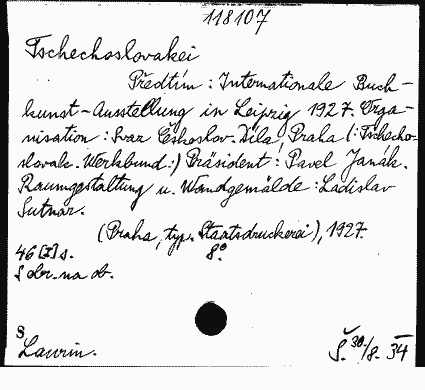 118107
Tschechoslovakei
Předtím: Internationale Buch-
kunst-Ausstellung in Leipzig 1927. Orga-
nisation: Svaz Českoslov. Díla, Praha (: Tschecho-
slovak. Werkbund:) Präsident: Pavel Janák.
Raumgestaltung u. Wandgemälde: Ladislav
Sutnar.
(Praha, typ. Staatsdruckerei), 1927.
46 [I] s. 8°
S obr. na ob.
S
Laurin.
Š. 30/8. 34